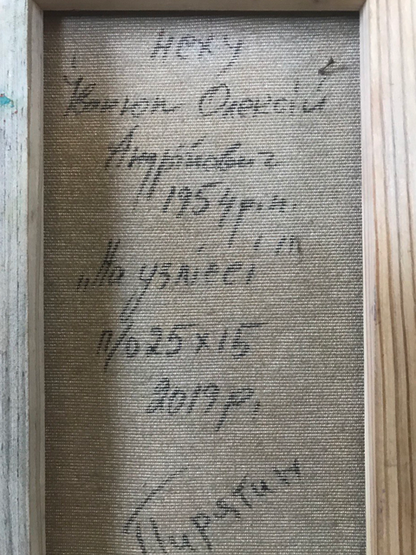 НСХУ
Олексій
Андрійович
1954 р.н.
"На узліссі"
п/о 25х15
2019 р.
Пирятин